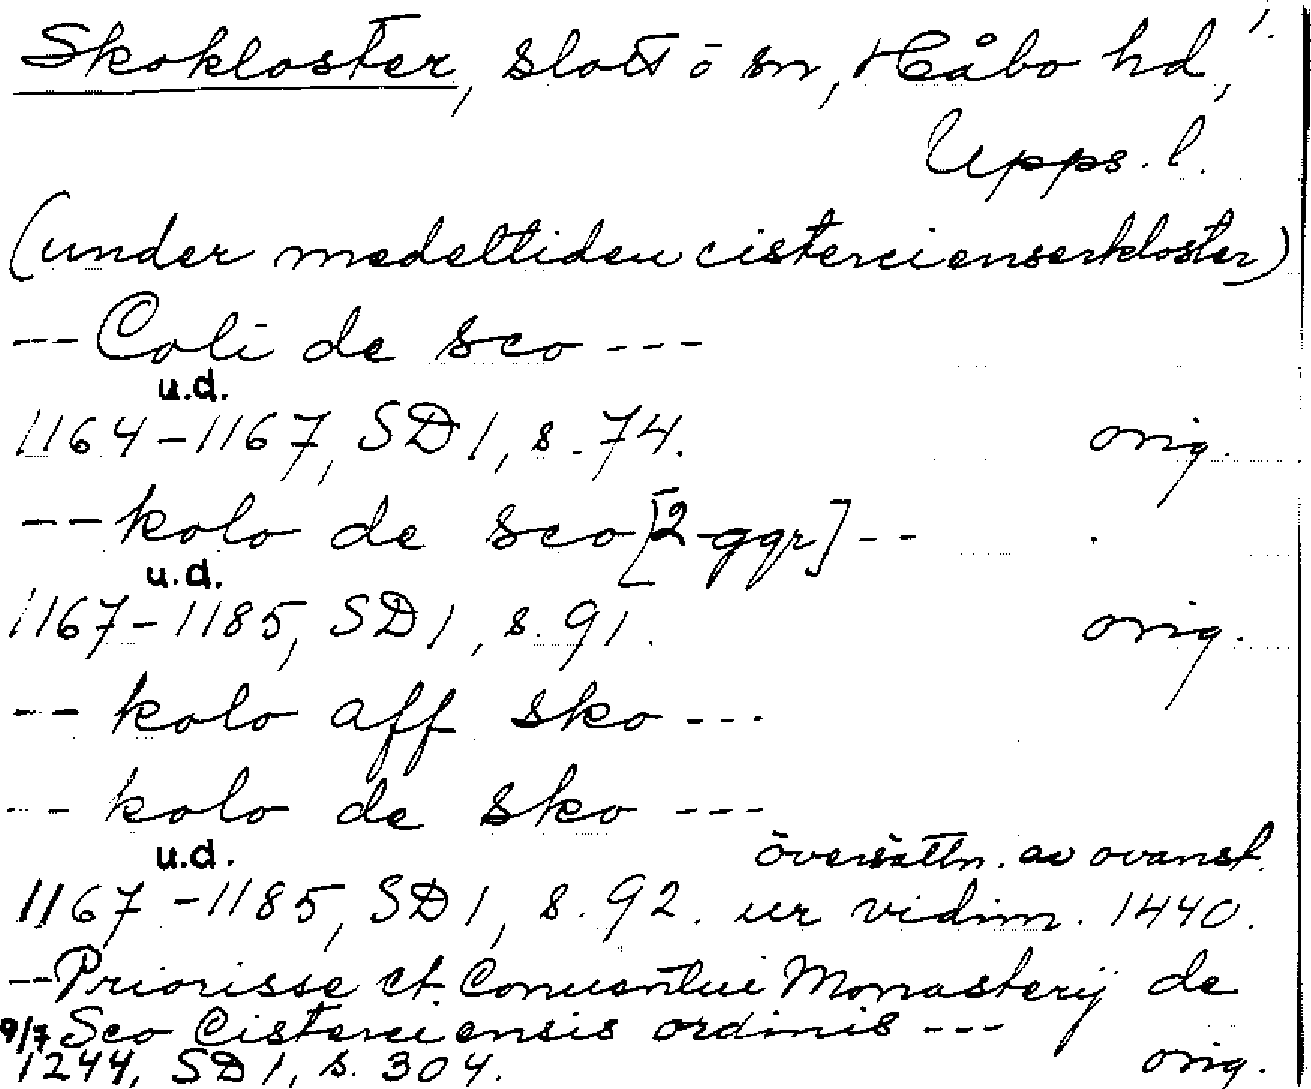 Skokloster, slott o sn, Håbo hd, 1.
Upps. l.
(under medeltiden cistercienserkloster)
-- Coli de sco ---
u.d.
1164-1167, SD 1, s. 74. orig.
-- kolo de sco [2 ggr] --
u.d.
1167-1185, SD 1, s. 91. orig.
-- kolo aff sko ---
-- kolo de sko ---
u.d. översättn. av ovanst.
1167-1185, SD 1, s. 92. ur vidim. 1440.
-- Priorisse et Conuentui Monasterij de
Sco Cisterciensis ordinis ---
9/7 1244, SD 1, s. 304. orig.